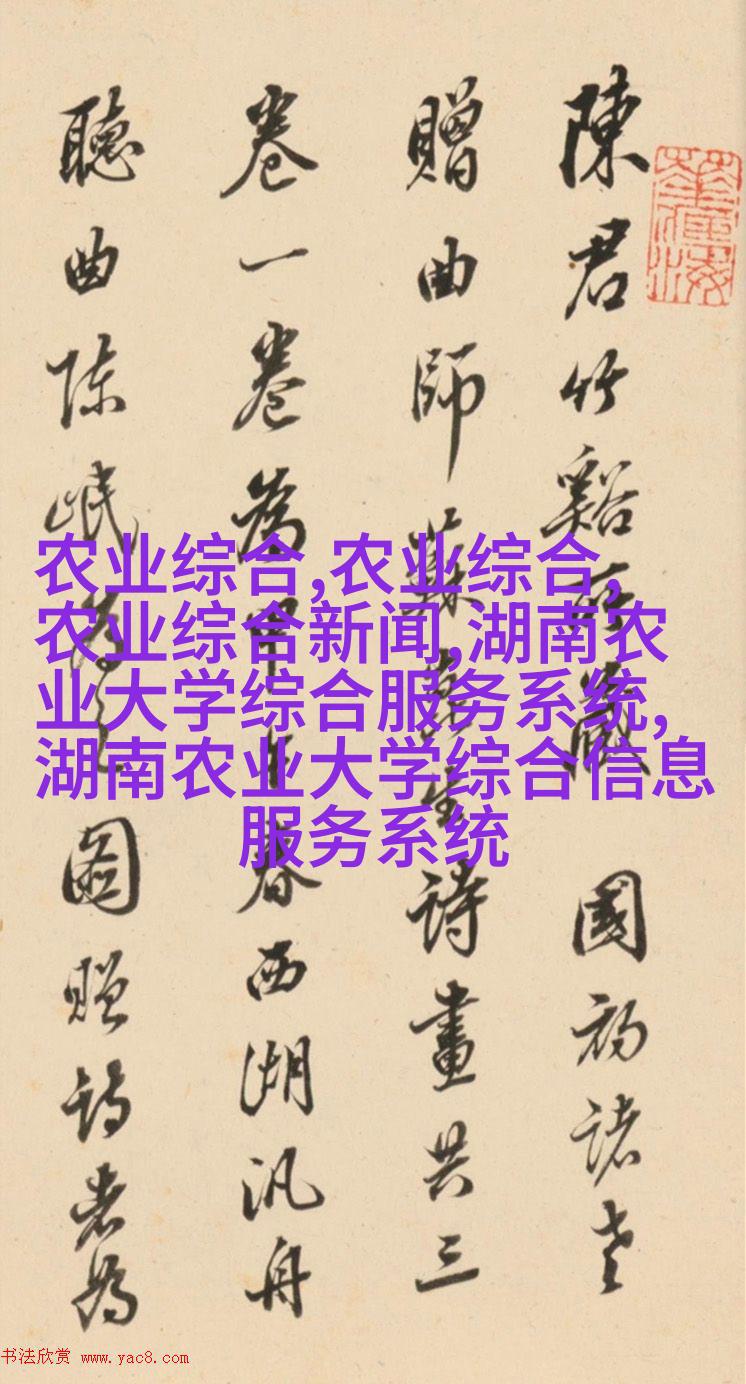 陳君竹谿所藏 國初諸老
贈曲師蘇崑生詩畫共三
卷一卷為甲春西湖汎舟
聽曲陈岷為之圖贈詩者為
农业综合,农业综合,
农业综合新闻,湖南农
业大学综合服务系统,
湖南农业大学综合信息
服务系统
书法欣赏 www.yac8.com